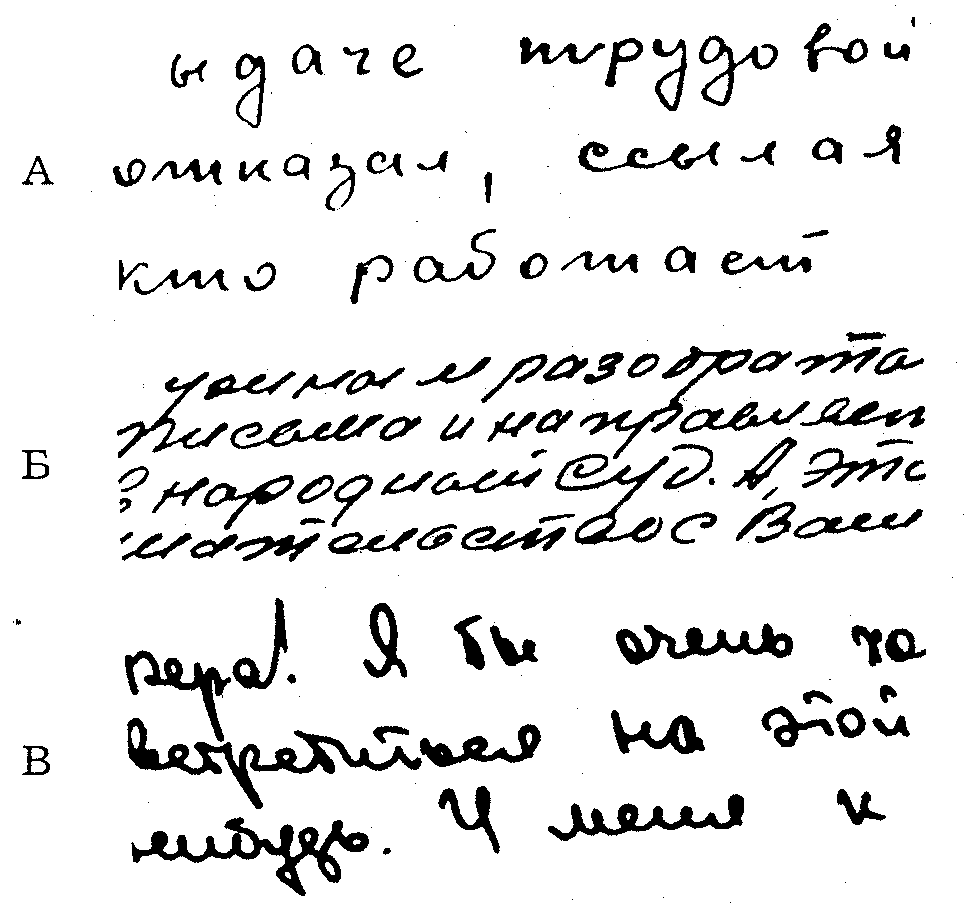 ыдаче трудовой
А отказал, ссылая
кто работает
разобрата
Б письма и направляет
в народный суд. А, это
мательство с Вам
вера! Я бы очень хо
В встретиться на этой
нибудь. У меня к